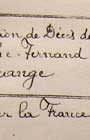 ion de Décès de
é-Fernand
uange
er la France